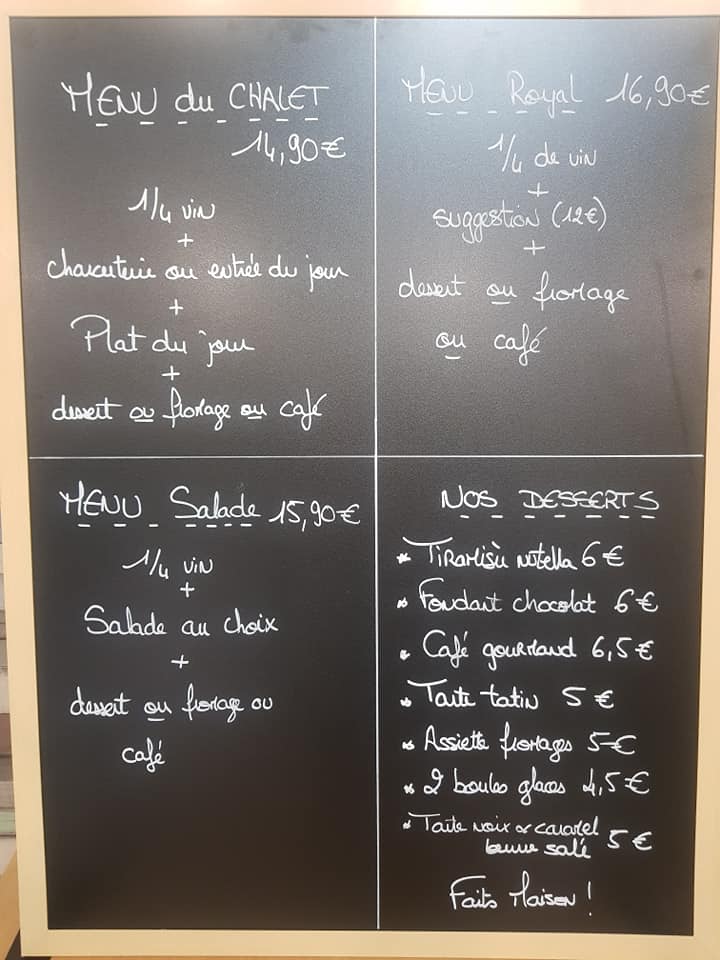 MENU du CHALET
14,90€
1/4 vin
+
charcuterie ou entrée du jour
+
Plat du jour
+
dessert ou fromage ou café
MENU Royal 16,90€
1/4 de vin
+
suggestion (12€)
+
dessert ou fromage
ou café
MENU Salade 15,90€
1/4 vin
+
Salade au choix
+
dessert ou fromage ou
café
NOS DESSERTS
* Tiramisù nutella 6€
* Fondant chocolat 6€
* Café gourmand 6,5€
* Tarte tatin 5€
* Assiette fromages 5€
* 2 boules glaces 4,5€
* Tarte noix caramel
beurre salé 5€
Faits Maison !